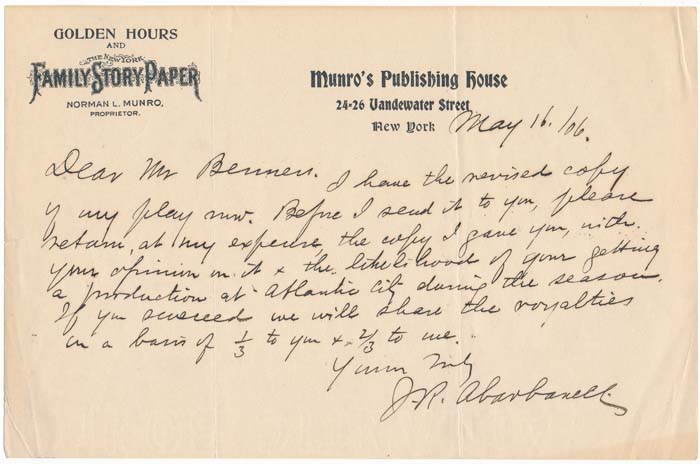 GOLDEN HOURS
AND
THE NEW YORK
FAMILY STORY PAPER
NORMAN L. MUNRO,
PROPRIETOR.
Munro's Publishing House
24-26 Vandewater Street
New York May 16./06.
Dear Mr I have the revised copy
of my play now. Before I send it to you, please
return, at my expense, the copy I gave you, with
your opinion on it & the likelihood of your getting
a production at Atlantic City during the season.
If you succeed we will share the royalties
on a basis of 1/3 to you & 2/3 to me.
Yours truly
J.R. Abarbanell.